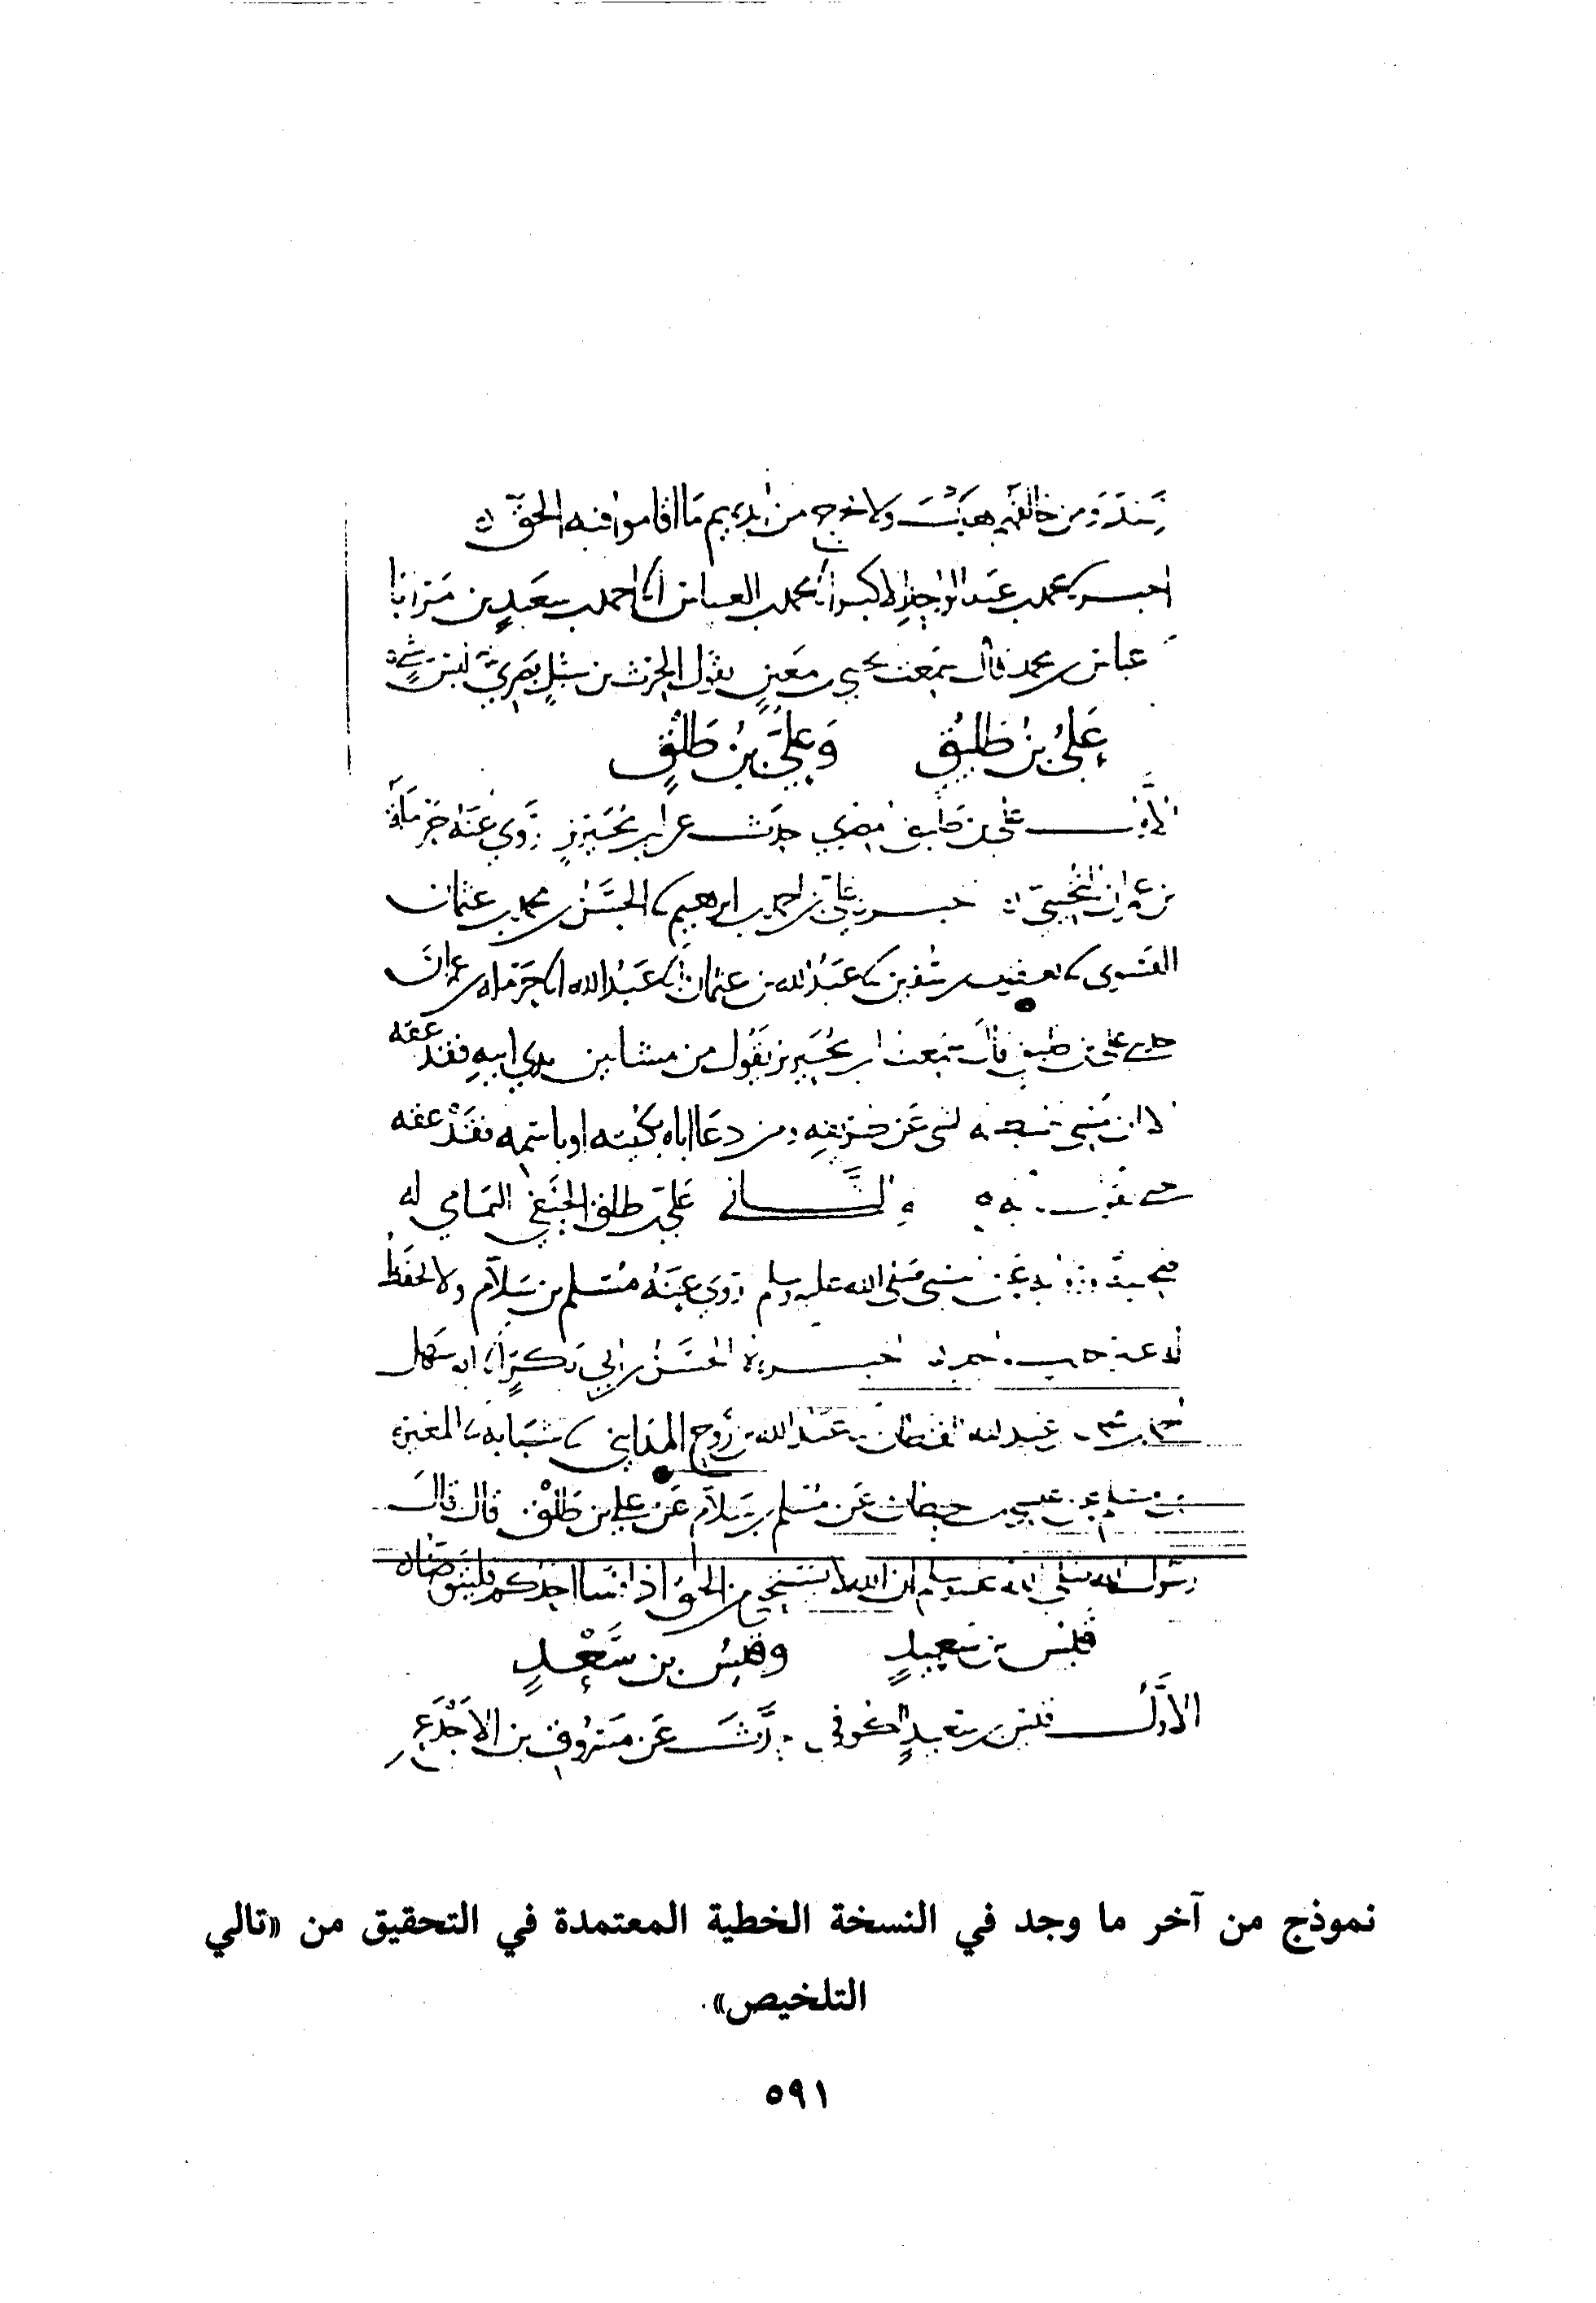 ولا خرج من ايديهم ما اقاموا فيه الحق
محمد بن عبد الواحد الاكبر انا محمد بن العباس انا احمد بن سعيد بن مرابا
عباس بن محمد قال سمعت يحيى بن معين يقول الحرث بن شبل بصري ليس بشي
علي بن طليق وعلي بن طلق
علي بن طليق مصري حدث عن ابن محيريز روى عنه حرملة
بن عمران التجيبي علي بن احمد بن ابرهيم الحسن بن محمد بن عثمان
الفسوي يعقوب بن سفين عبد الله بن عثمان عبد الله انا حرملة بن عمران
علي بن طليق قال سمعت ابن محيريز يقول من مشا بين يدي ابيه فقد عقه
عن طريقه ومن دعا اباه بكنيته او باسمه فقد عقه
والثاني علي بن طلق الحنفي اليمامي له
صلى الله عليه وسلم روى عنه مسلم بن سلام ولا احفظ
الحسن بن ابي بكر انا ابو سهل
القطان عبد الله بن روح المدايني شبابة المغيرة
بن مسلم عن عيسى بن حطان عن مسلم بن سلام عن علي بن طلق قال قال
رسول الله صلى الله عليه وسلم ان الله لا يستحي من الحق اذا فسا احدكم فليتوضاه
قيس بن سعيد وقيس بن سعد
الاول قيس بن سعيد الكوفي حدث عن مسروق بن الاجدع
نموذج من آخر ما وجد في النسخة الخطية المعتمدة في التحقيق من «تالي
التلخيص».
٥٩١